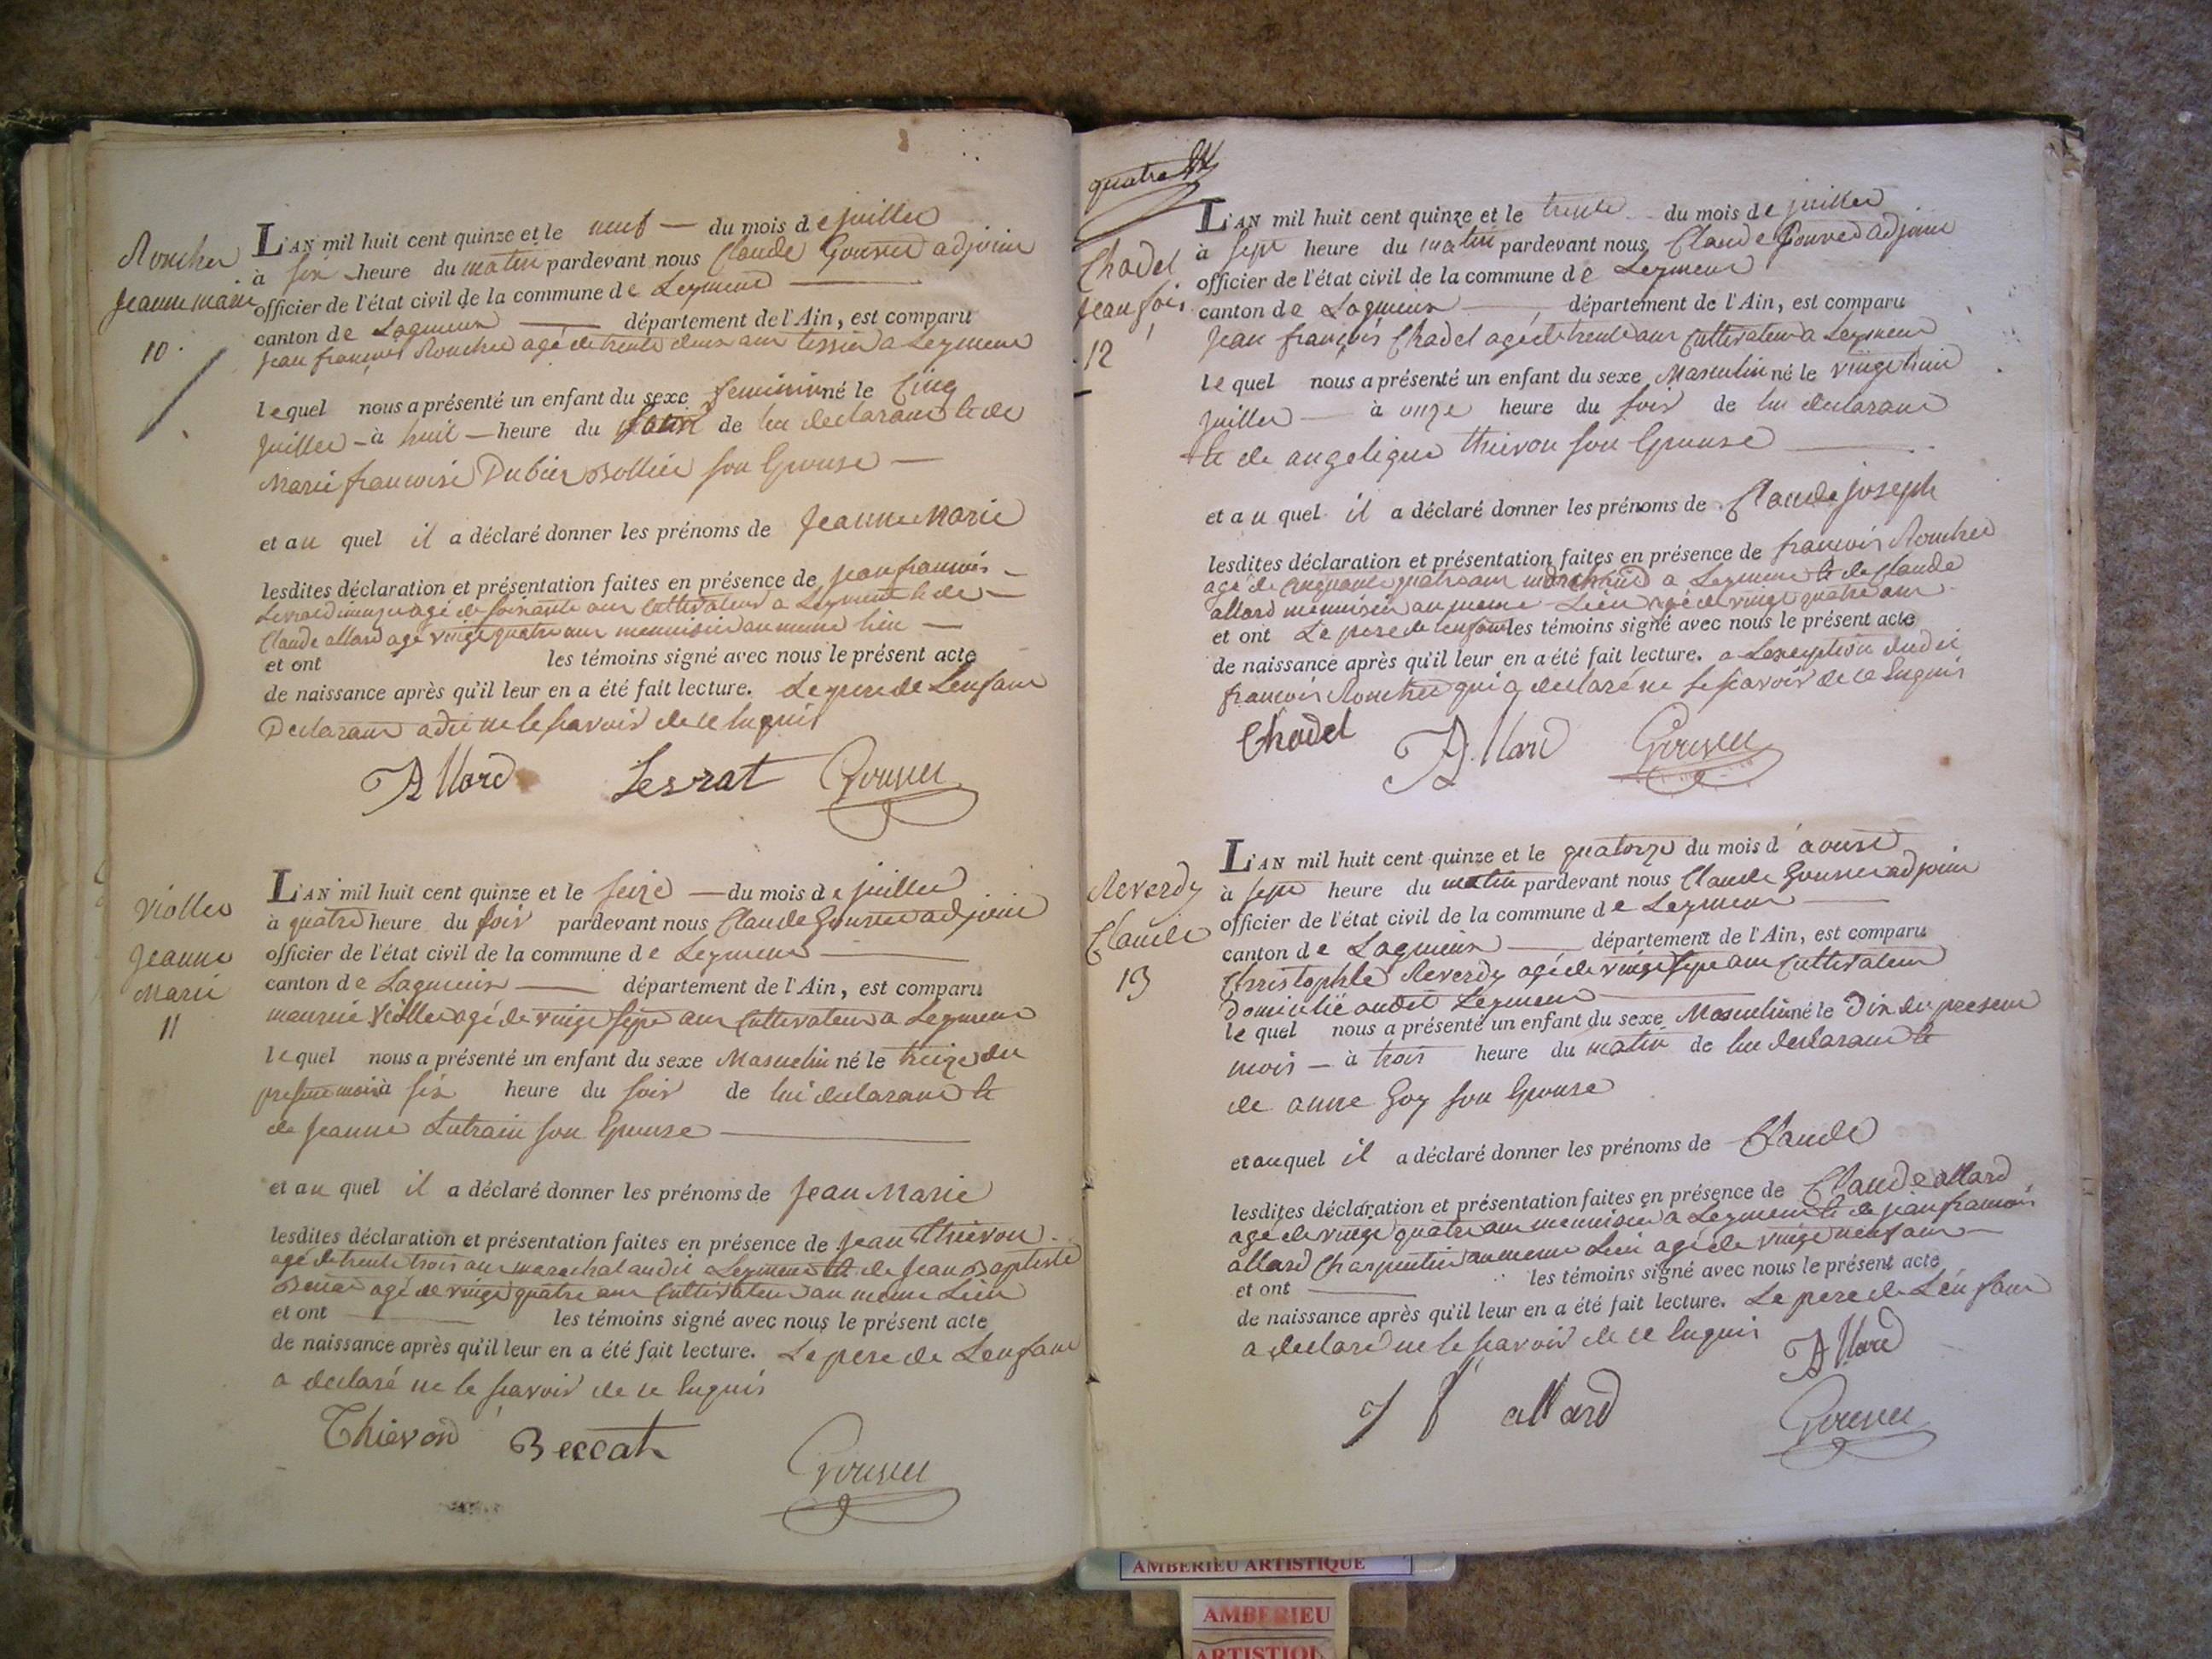 Roucher
Jeanne marie
10
L'AN mil huit cent quinze et le neuf — du mois de juillet
à six heure du matin pardevant nous Claude Gouvet adjoint
officier de l'état civil de la commune de Leyment
canton de Lagnieux — département de l'Ain, est comparu
jean françois Roucher agé de trente deux ans tessier a Leyment
lequel nous a présenté un enfant du sexe feminin né le Cinq
juillet - à huit — heure du soir de lui declarant et de
Marie francoise Dubier Bollier son Epouse —
et au quel il a déclaré donner les prénoms de Jeanne Marie
lesdites déclaration et présentation faites en présence de jean francois
agé de soixante ans Cultivateur a Leyment et de
Claude allard agé vingt quatre ans menuisier au meme lieu —
et ont les témoins signé avec nous le présent acte
de naissance après qu'il leur en a été fait lecture. Le pere de Lenfant
Declarant a dit ne le scavoir de ce Enquis
Allard Levrat Gouvet
Viollet
Jeanne
Marie
11
L'AN mil huit cent quinze et le seize — du mois de juillet
à quatre heure du soir pardevant nous Claude Gouvet adjoint
officier de l'état civil de la commune de Leyment
canton de Lagnieux — département de l'Ain, est comparu
maurice Viollet agé de vingt sept ans Cultivateur a Leyment
lequel nous a présenté un enfant du sexe Masculin né le treize du
present mois à six heure du soir de lui declarant et
de Jeanne Lutrain son Epouse —
et au quel il a déclaré donner les prénoms de Jean Marie
lesdites déclaration et présentation faites en présence de Jean Thievon
agé de trente trois ans marechal audit Leyment et de Jean Baptiste
agé de vingt quatre ans Cultivateur au meme Lieu
et ont — les témoins signé avec nous le présent acte
de naissance après qu'il leur en a été fait lecture. Le pere de Lenfant
a declaré ne le scavoir de ce Enquis
Thievon Beccat
Gouvet
quatre
Chadel
Jean fois
12
L'AN mil huit cent quinze et le trente du mois de juillet
à sept heure du matin pardevant nous Claude Gouvet adjoint
officier de l'état civil de la commune de Leyment
canton de Lagnieux — département de l'Ain, est comparu
Jean françois Chadel agé de trente ans Cultivateur a Leyment
lequel nous a présenté un enfant du sexe Masculin né le vingt huit
juillet — à onze heure du soir de lui declarant
et de angelique thievon son Epouse —
et au quel il a déclaré donner les prénoms de Claude joseph
lesdites déclaration et présentation faites en présence de francois Roucher
agé de Cinquante quatre ans marchand a Leyment et de Claude
allard menuisier au meme Lieu agé de vingt quatre ans
et ont Le pere de lenfant les témoins signé avec nous le présent acte
de naissance après qu'il leur en a été fait lecture. a Lexception dudit
francois Roucher qui a declaré ne le scavoir de ce Enquis
Chadel Allard Gouvet
Reverdy
Claude
13
L'AN mil huit cent quinze et le quatorze du mois d'aoust
à sept heure du matin pardevant nous Claude Gouvet adjoint
officier de l'état civil de la commune de Leyment
canton de Lagnieux — département de l'Ain, est comparu
Christophle Reverdy agé de vingt sept ans Cultivateur
Domicilié audit Leyment
lequel nous a présenté un enfant du sexe Masculin né le Dix du present
mois — à trois heure du matin de lui declarant et
de anne Goy son Epouse
et auquel il a déclaré donner les prénoms de Claude
lesdites déclaration et présentation faites en présence de Claude allard
agé de vingt quatre ans menuisier a Leyment et de jean francois
allard Charpentier au meme Lieu agé de vingt neuf ans —
et ont — les témoins signé avec nous le présent acte
de naissance après qu'il leur en a été fait lecture. Le pere de Lenfant
a declaré ne le scavoir de ce Enquis Allard
j f allard Gouvet
AMBERIEU ARTISTIQUE
AMBERIEU
ARTISTIQ